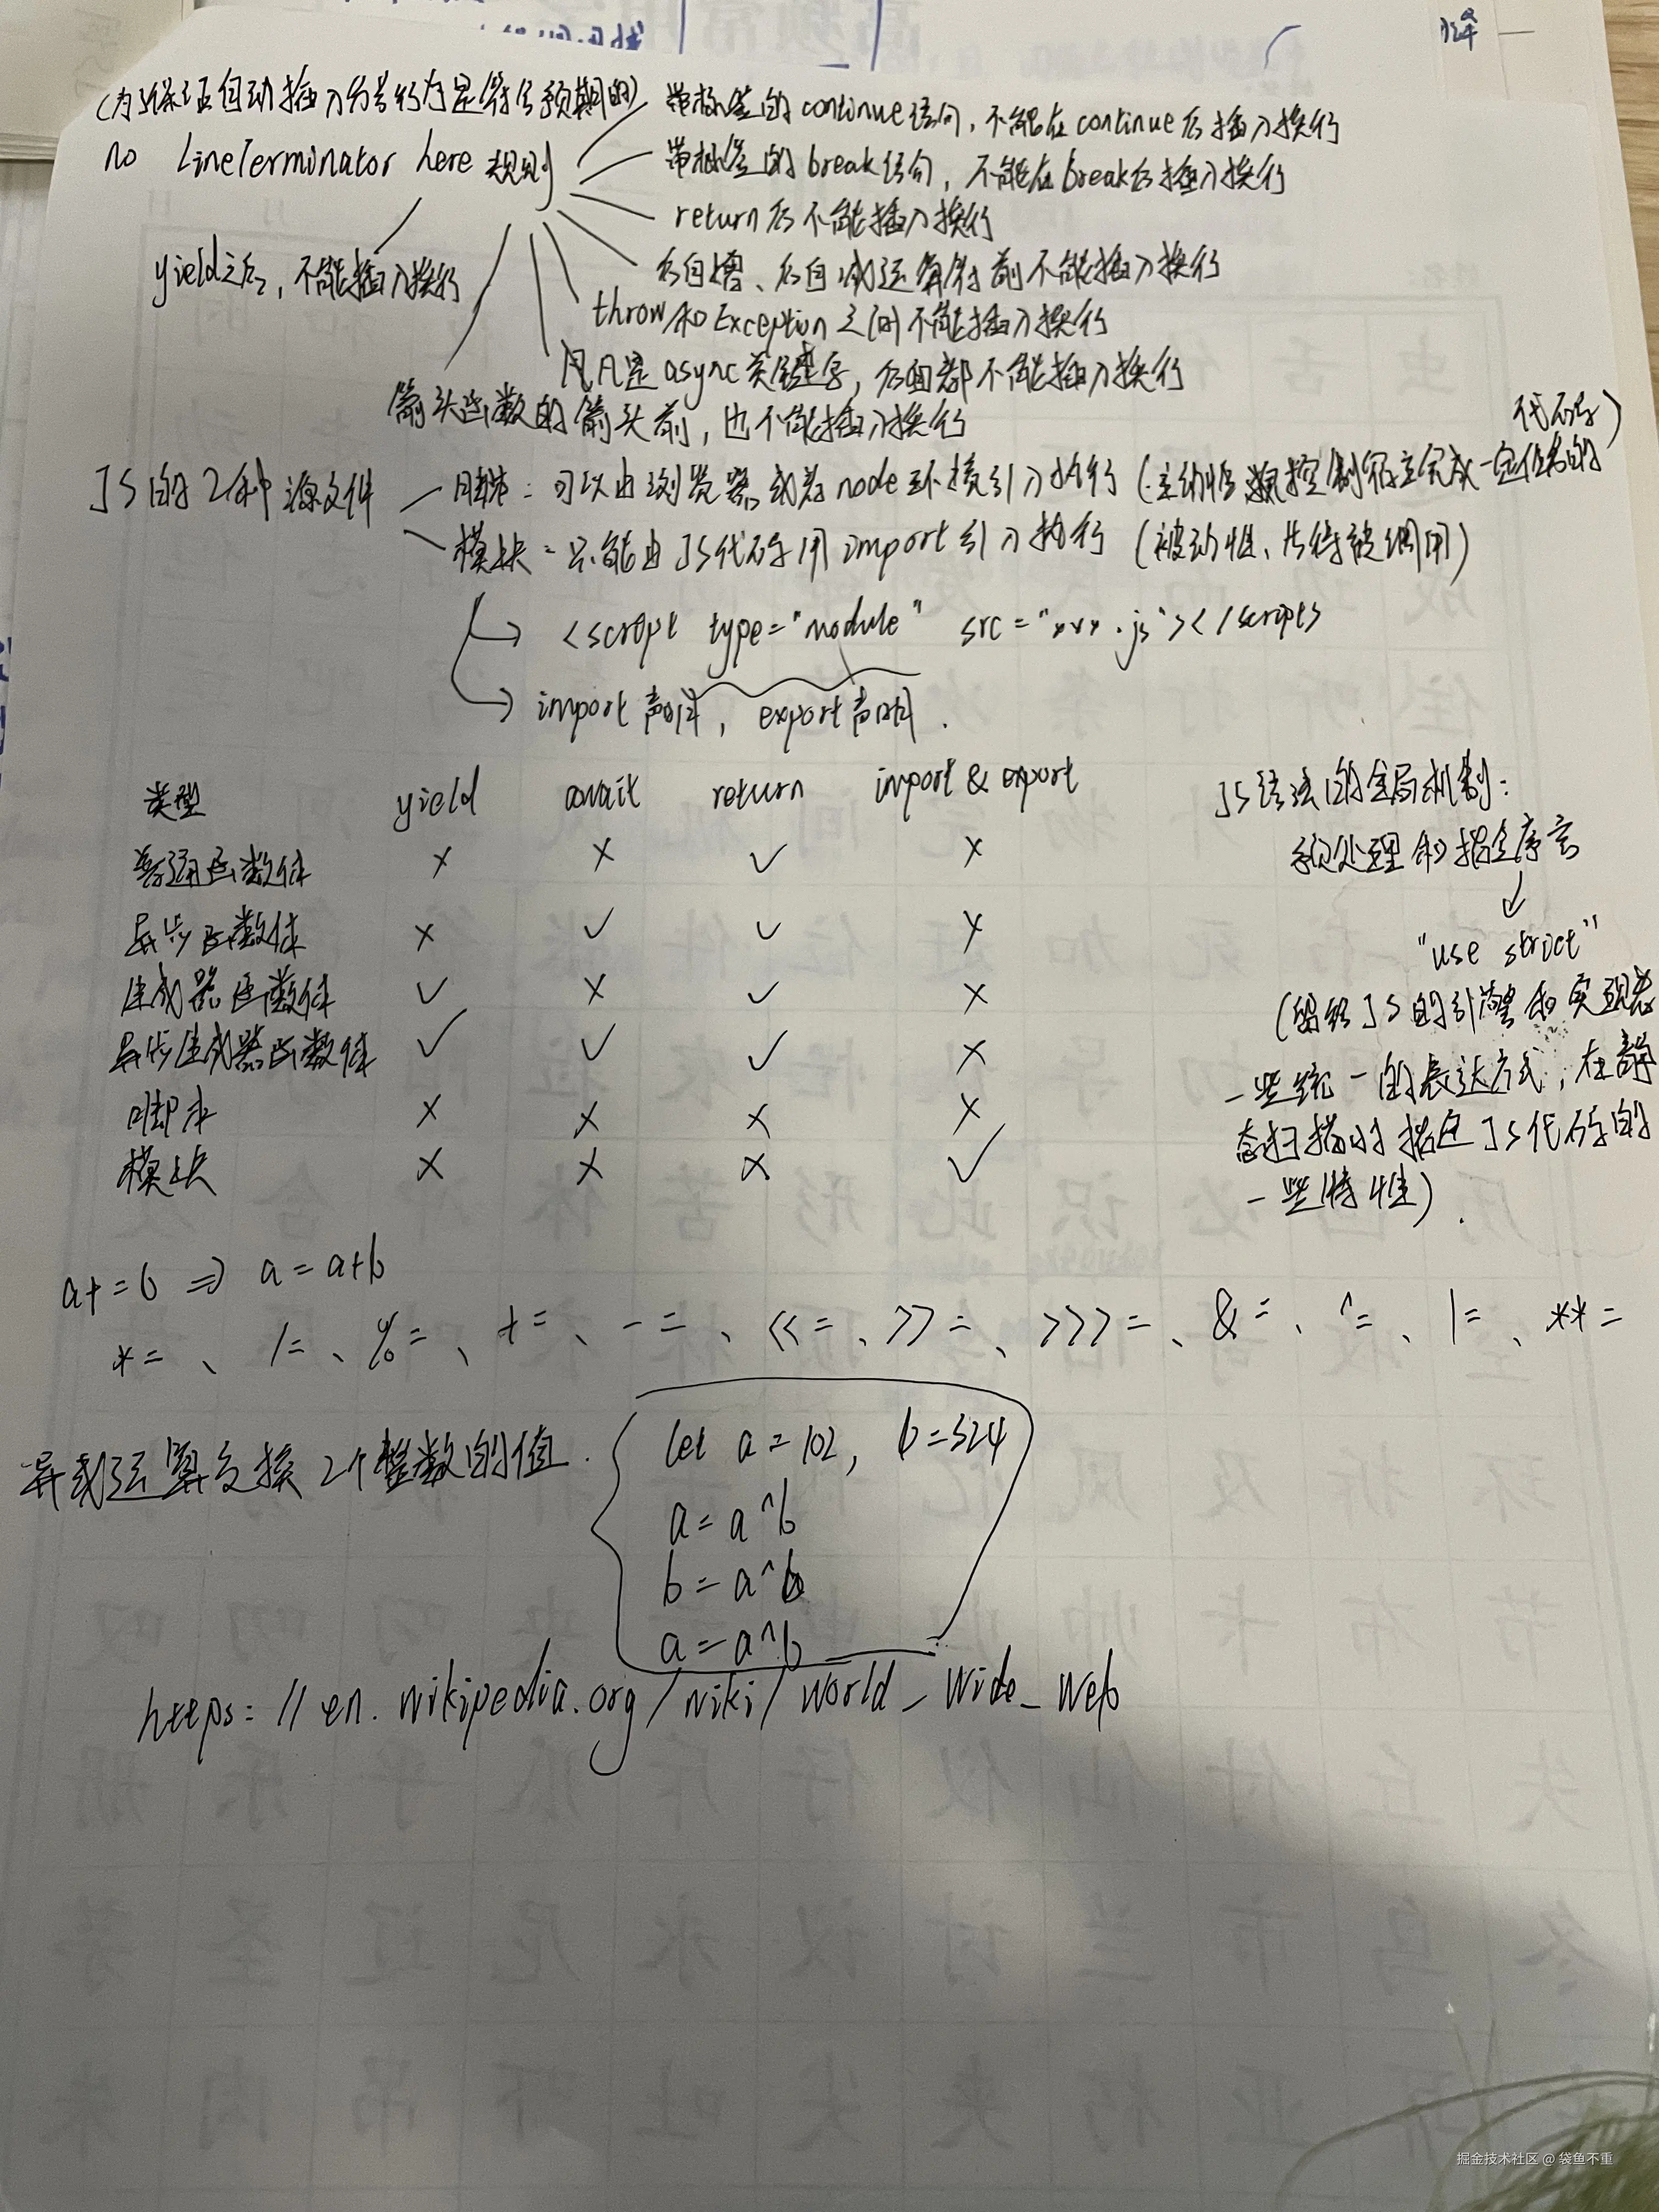 (为了保证自动插入分号行为是符合预期的)
no LineTerminator here 规则
带标签的continue语句，不能在continue后插入换行
带标签的break语句，不能在break后插入换行
return后不能插入换行
后自增、后自减运算符前不能插入换行
throw和Exception之间不能插入换行
凡是async关键字，后面都不能插入换行
箭头函数的箭头前，也不能插入换行
yield之后，不能插入换行
JS的2种源文件
脚本：可以由浏览器或者node环境引入执行（主动性 控制宿主完成一定任务的
代码）
模块：只能由JS代码用import引入执行（被动性、等待被调用）
<script type="module" src="xxx.js"></script>
import声明，export声明.
类型 yield await return import & export
普通函数体 × × ✓ ×
异步函数体 × ✓ ✓ ×
生成器函数体 ✓ × ✓ ×
异步生成器函数体 ✓ ✓ ✓ ×
脚本 × × × ×
模块 × × × ✓
JS语法的全局机制：
预处理和指令序言
"use strict"
(留给JS的引擎和实现者
一些统一的表达方式，在静
态扫描时指定JS代码的
一些特性).
a+=b ⇒ a=a+b
*=、/=、%=、+=、-=、<<=、>>=、>>>=、&=、^=、|=、**=
异或运算交换2个整数的值.
let a=102, b=324
a=a^b
b=a^b
a=a^b
https://en.wikipedia.org/wiki/World_Wide_Web
掘金技术社区 @ 袋鱼不重